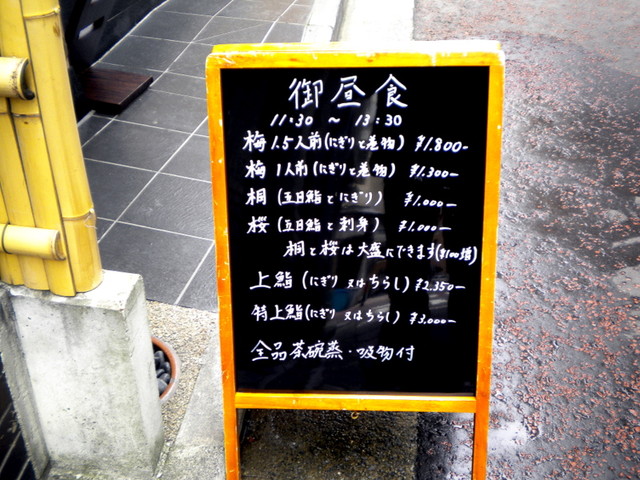 御昼食
11:30 ~ 13:30
梅 1.5人前(にぎりと巻物) ¥1.800-
梅 1人前(にぎりと巻物) ¥1.300-
桐 (五目鮨とにぎり) ¥1.000-
桜 (五目鮨と刺身) ¥1.000-
桐と桜は大盛にできます(¥100増)
上鮨 (にぎり又はちらし) ¥2.350-
特上鮨(にぎり又はちらし) ¥3.000-
全品茶碗蒸・吸物付